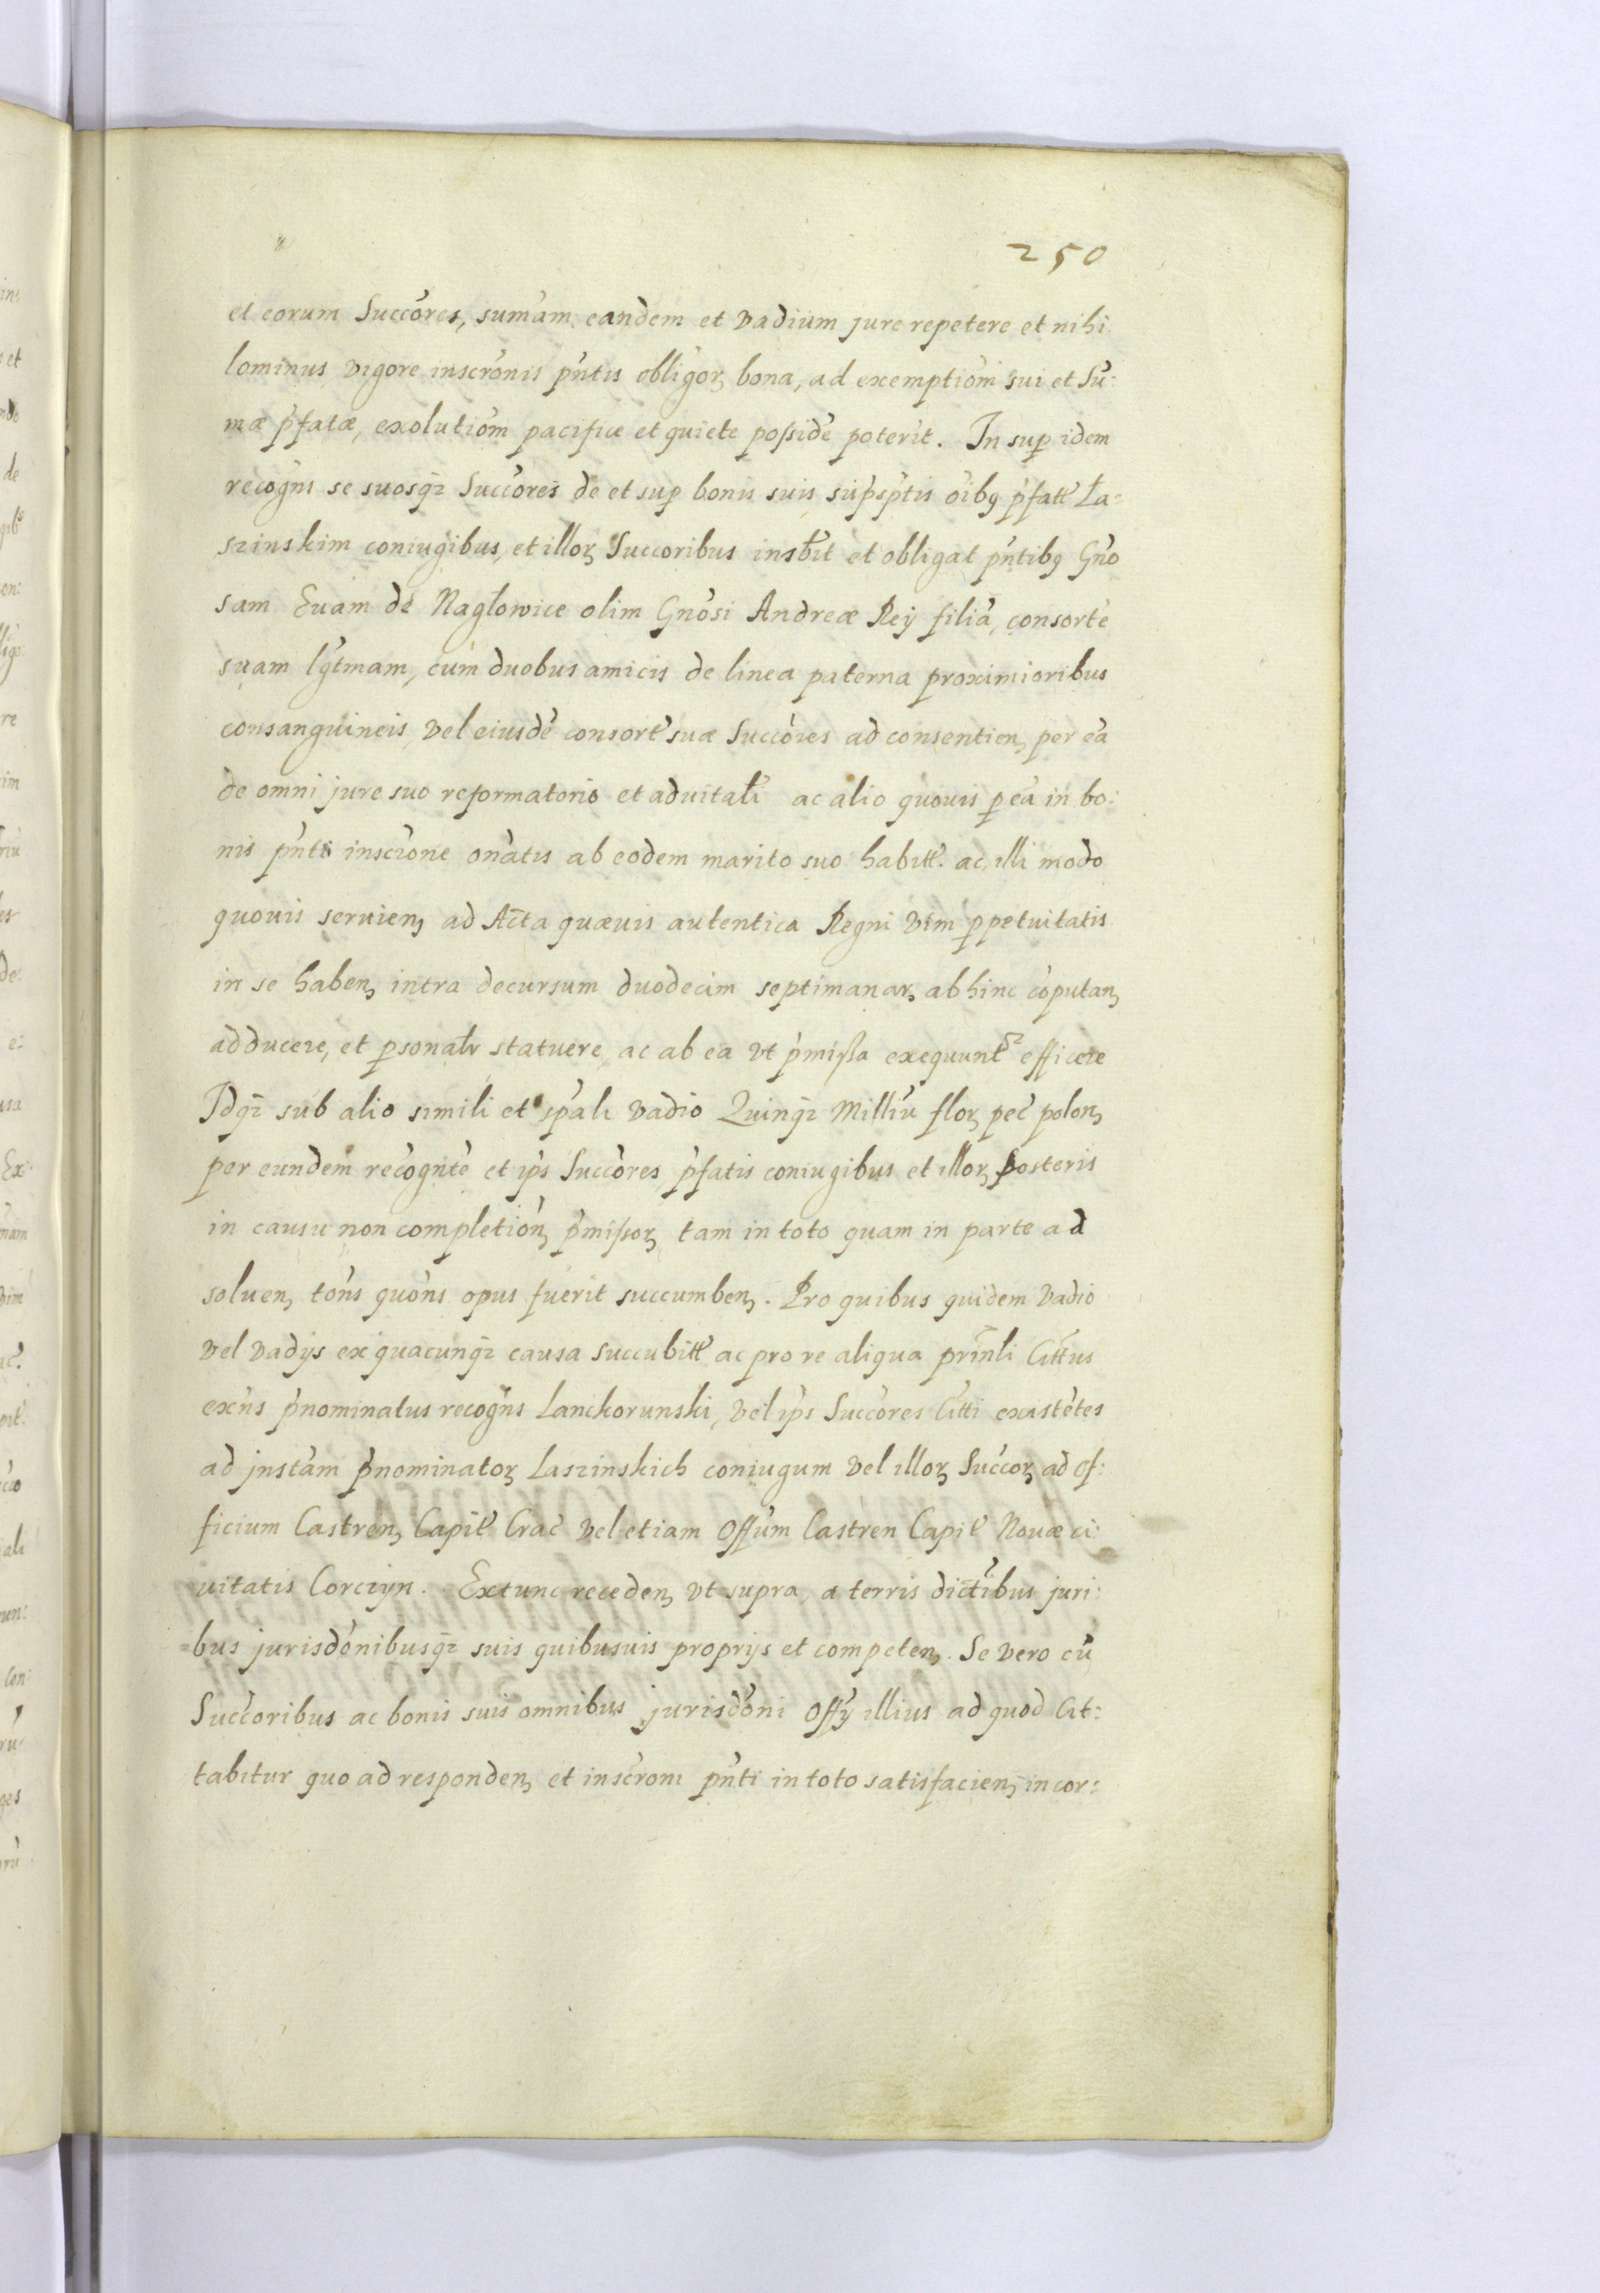 250
et eorum Succores, sumam eandem et vadium jure repetere et nihi:
lominus vigore inscronis pntis obligor, bona, ad exemptiom sui et Su:
mæ pfatæ, exolutiom pacifice et quiete posside poterit. In sup idem
recogns se suosq, Succores de et sup bonis suis supsptis oibq pfatt La:
szinskim coniugibus, et illor, Succoribus insbit et obligat pntibq Gno
sam Euam de Naglowice olim Gnosi Andreæ Rey filia, consorte
suam lgtmam, cum duobus amicis de linea paterna proximioribus
consanguineis, vel eiusde consort suæ Succores ad consentien, per ea
de omni jure suo reformatorio et aduitali ac alio quouis p ea in bo:
nis pnti inscrone onatis ab eodem marito suo habitt. ac illi modo
quouis seruien, ad Acta quæuis autentica Regni vim ppetuitatis
in se haben, intra decursum duodecim septimanar, abhinc coputan,
adducere, et psonalr statuere, ac ab ea vt pmissa exequunt efficere
Idq, sub alio simili et spali vadio Quinq, Milliu flor, pec polon,
per eundem recognte et ips Succores pfatis coniugibus et illor, posteris
in causu non completion, pmissor, tam in toto quam in parte ad
soluen, tons quons opus fuerit succumben,. Pro quibus quidem vadio
vel vadys ex quacunq, causa succubitt ac pro re aliqua prinli Cittus
exns pnominatus recogns Lanckorunski, vel ips Succores Citti existetes
ad jnstam pnominator, Laszinskich coniugum vel illor, Succor, ad of:
ficium Castren, Capit Crac vel etiam Offum Castren Capit Nouæ ci:
uitatis Corczyn. Extunc receden, vt supra, a terris dictibus juri:
bus jurisdonibusq, suis quibusuis proprys et competen,. Se vero cu
Succoribus ac bonis suis omnibus jurisdoni Offy illius ad quod Cit:
tabitur quo ad responden, et inscroni pnti in toto satisfacien, in cor: